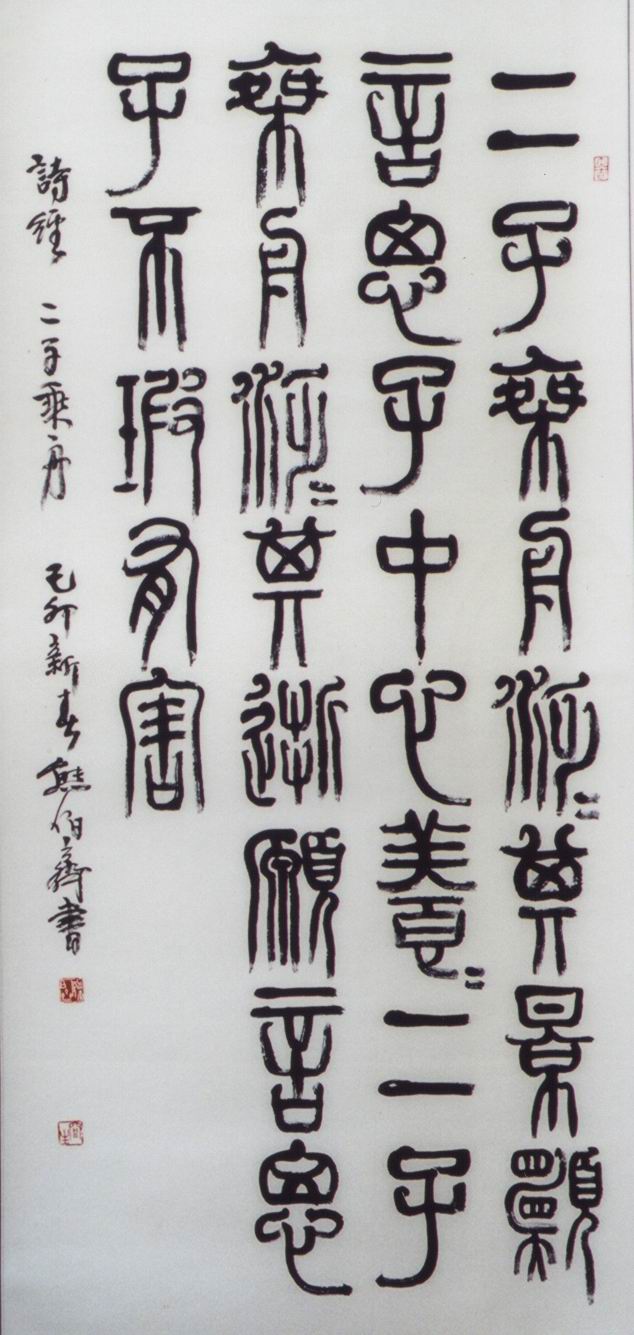 二子乘舟汎〻其景願
言思子中心養〻二子
乘舟汎〻其逝願言思
子不瑕有害
詩經 二子乘舟 己卯新春熊伯齊書